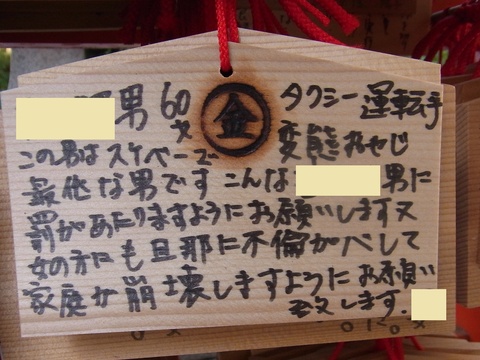 男60才 タクシー運転手
金
この男はスケベーで 変態オヤジ
最低な男です こんな 男に
罰があたりますようにお願いします又
女の方にも旦那に不倫がバレして
家庭が崩壊しますようにお願い
致します.